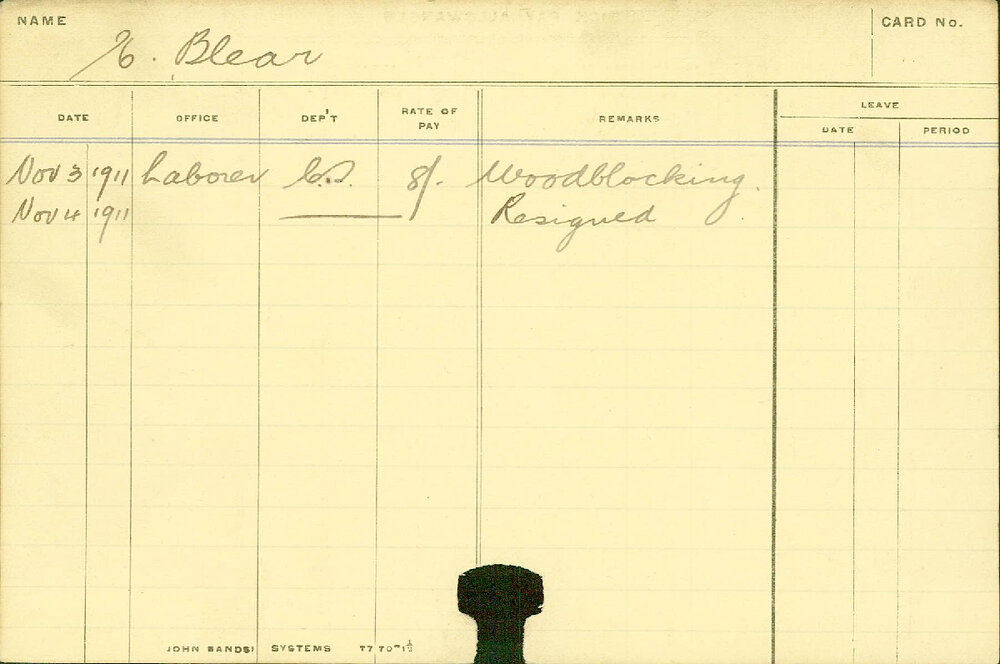 NAME
E. Blear
CARD No.
DATE OFFICE DEP'T RATE OF PAY REMARKS LEAVE
DATE PERIOD
Nov 3 1911 Laborer C.S. 8/- Woodblocking.
Nov 4 1911 Resigned
JOHN SANDS SYSTEMS